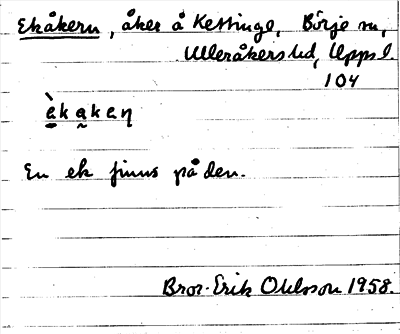 Ekåkern, åker å Kettinge, Börje sn,
Ulleråkers hd, Upps l.
104
èkakeɳ
En ek finns på den.
Bror-Erik Ohlsson 1958.